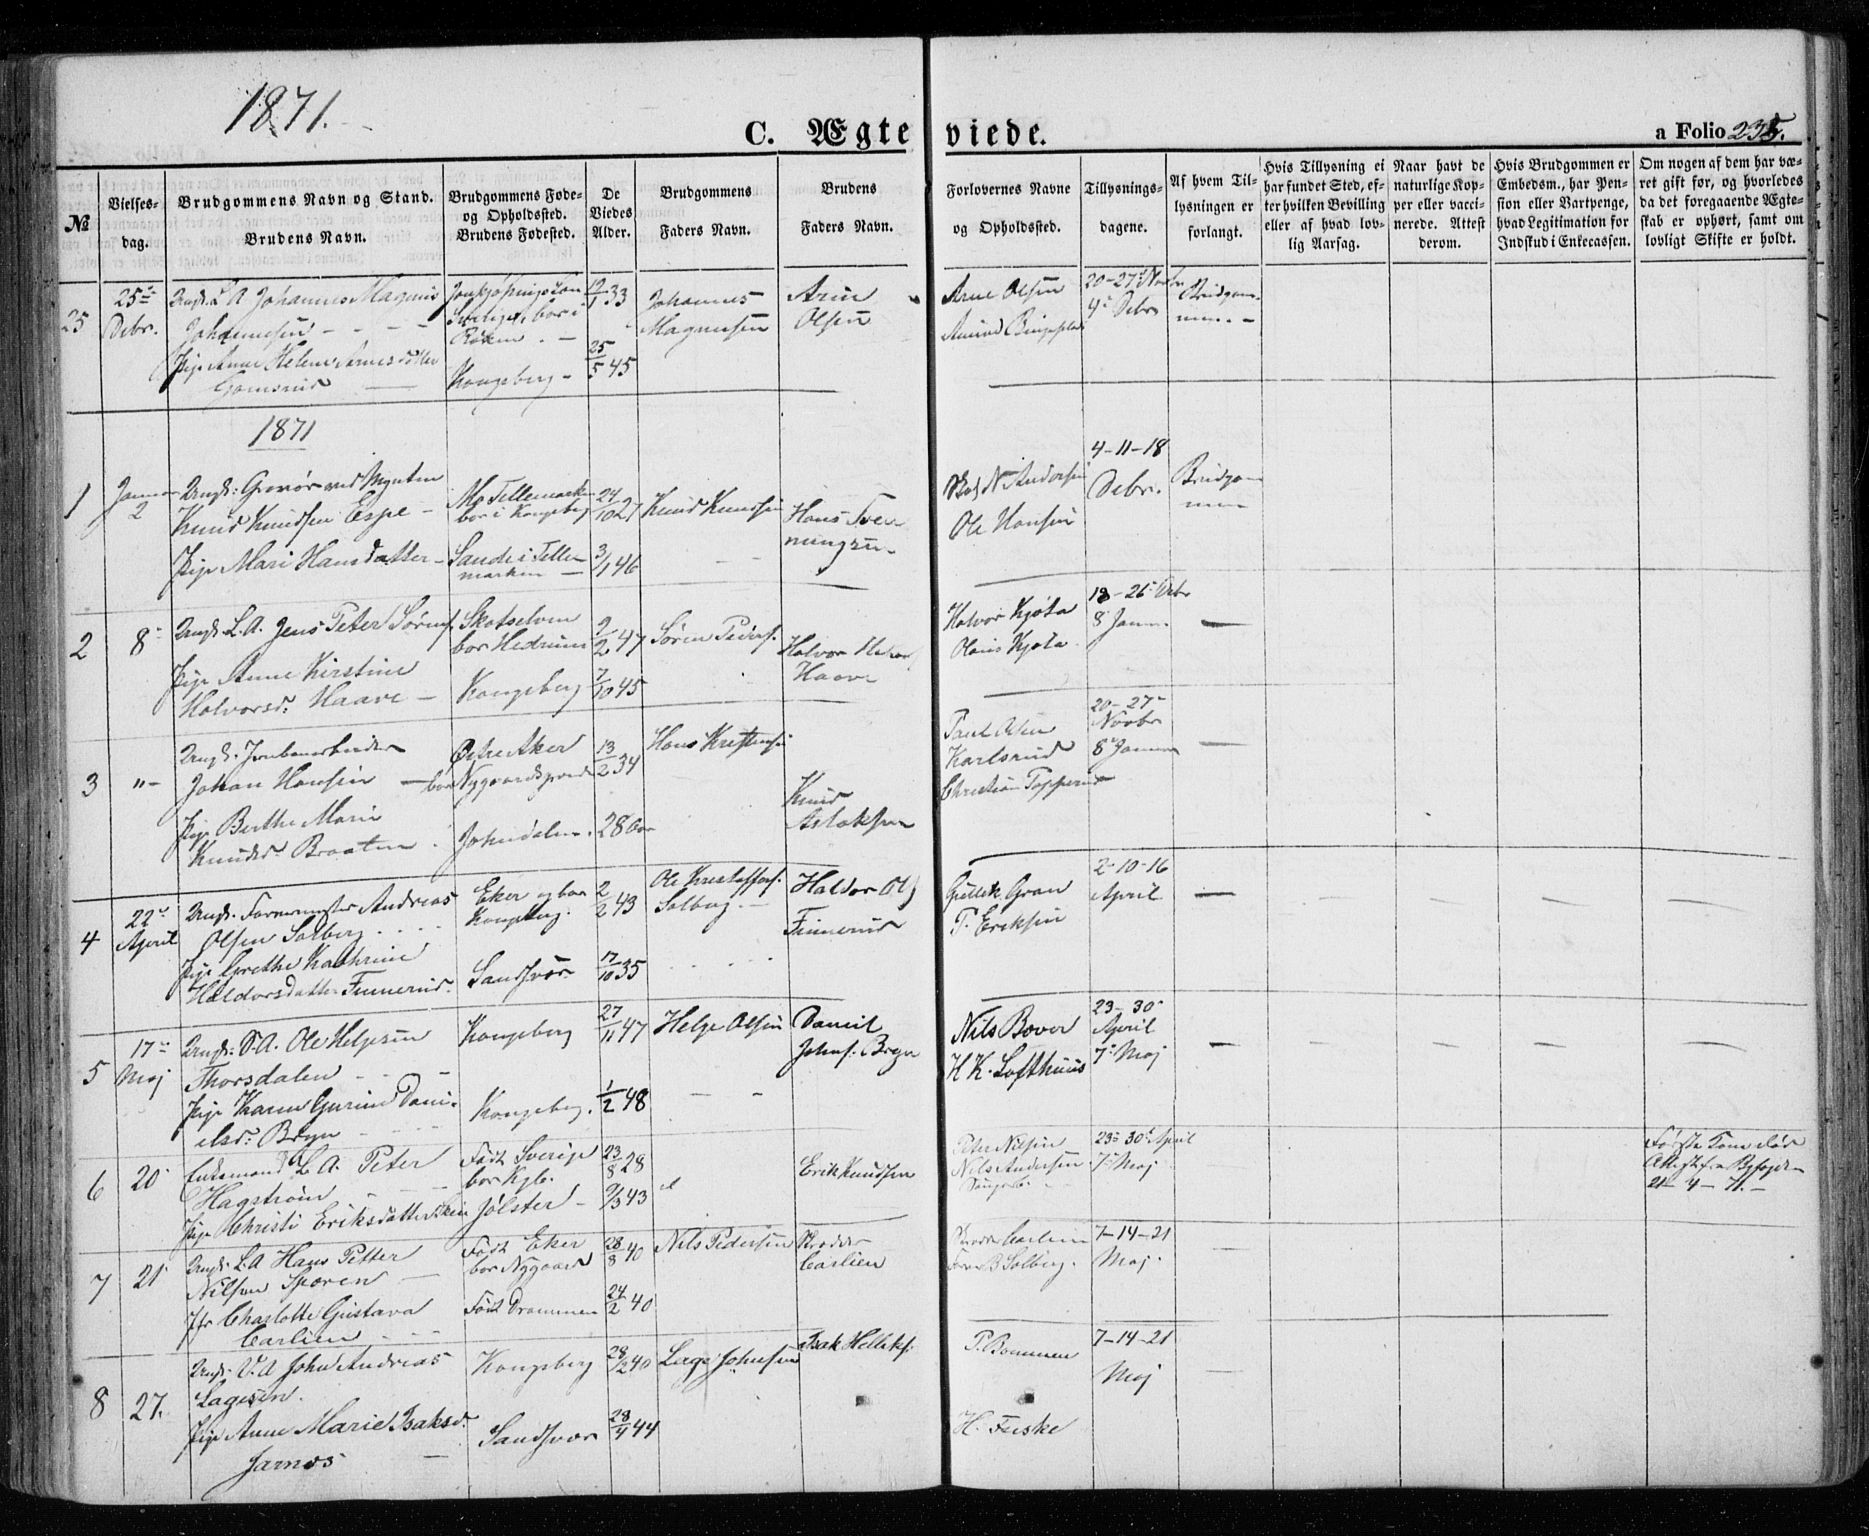 1871.
C. Ægteviede.
a Folio 235.
No
Vielses-
dag.
Brudgommens Navn og Stand.
Brudens Navn.
Brudgommens Føde-
og Opholdssted.
Brudens Fødested.
De
Viedes
Alder.
Brudgommens
Faders Navn.
Brudens
Faders Navn.
Forlovernes Navne
og Opholdssted.
Tillysnings-
dagene.
Af hvem Til-
lysningen er
forlangt.
Hvis Tillysning ei
har fundet Sted, ef-
ter hvilken Bevilling
eller af hvad lov-
lig Aarsag.
Naar havt de
naturlige Kop-
per eller vacci-
nerede. Attest
derom.
Hvis Brudgommen er
Embedsm., har Pen-
sion eller Vartpenge,
hvad Legitimation for
Indskud i Enkecassen.
Om nogen af dem har væ-
ret gift før, og hvorledes
da det foregaaende Ægte-
skab er ophørt, samt om
lovligt Skifte er holdt.
25
25de
Debr.
Ungk. L A Johannes Magnus
Johannesen
Pige Anne Helene Arnesdatter
Gomsrud
Jonkjøpings Län
Sverige, bor i
Røken
Kongsberg
19/1 33
25/5 45
Johannes
Magnusen
Arne
Olsen
Arne Olsen
Amund Bingeplas
20-27de Novbr
4de Debr
Brudgom-
men
1871
1
Januar
2
Ungk: Gravør ved Mynten
Knud Knudsen Espe
Pige Mari Hansdatter
Mo Tellemarken
bor i Kongsberg
Sande i Telle-
marken
24/10 27
3/1 46
Knud Knudsen
Hans Tven
N. Andersen
Ole Hansen
4-11-18
Debr.
Brudgom-
men
2
8de
Ungk L. A. Jens Peter Sørens.
Pige Anne Kirstine
Halvorsd. Haave
Skotselven
bor Hedrum
Kongsberg
2/2 47
7/10 45
Søren Peders.
Halvor
Haave
Halvor Kjøta
Hans Kjøta
18-26 Debr
8 Janu.
3
"
Ungk. Jernbanearbeider
Johan Hansen
Pige Berthe Marie
Knudsd. Braaten
Østre Aker
bor Nygaardsgrund
Johndalen
13/2 34
28 Aar
Hans Kristensen
Knud
Aslaksen
Paul Olsen
Karlsrud
Christian Topperud
20-27de
Novbr
8de Januar
4
22de
April
Ungk. Formermester Andreas
Olsen Solberg
Pige Grethe Kathrine
Haldorsdatter Finnerud.
Eker og bor
Kongsberg.
Sandsvær
2/2 43
17/10 35
Ole Kristoffers.
Solberg
Haldor Ols
Finnerud
Gullik Gran
T. Eriksen
2-10-16
April
5
17de
Maj
Ungk: D.A. Ole Helgesen
Thorsdalen
Pige Karen Gurine Dani-
elsd. Bryn
Kongsberg
Kongsberg.
27/11 47
1/2 48
Helge Olsen
Daniel
Johns. Bryn
Nils Bover
H K. Lofthuus
23-30de
April
7de Maj
6
20
Enkemand L. A. Peter
Hagstrøm
Pige Christi Eriksdatter
Født Sverige
bor Kgb.
Jølster
23/8 28
9/3 43
Erik Knudsen
Peter Nilsen
Nils Andersen
23-30de April
7de Maj
Første Kone død
Attest fra Byfogden
21-4-71.
7
21
Ungk. L.A Hans Petter
Nilsen Sporen
Jfr Charlotte Gustava
Carlien
Født Eker
bor Nygaard
Født Drammen
28/8 40
24/2 40
Nils Pedersen
Carlien
Carlien
B Solberg.
7-14-21
Maj.
8
27.
Ungk. V.A John Andreas
Lagesen.
Pige Anne Marie Isaksd.
Jarnæs
Kongsberg
Sandsvær
28/2 40
28/4 44
Lage Johnsen
Isak Helliks.
P. Bommen
H. Feiske
7-14-21
Maj